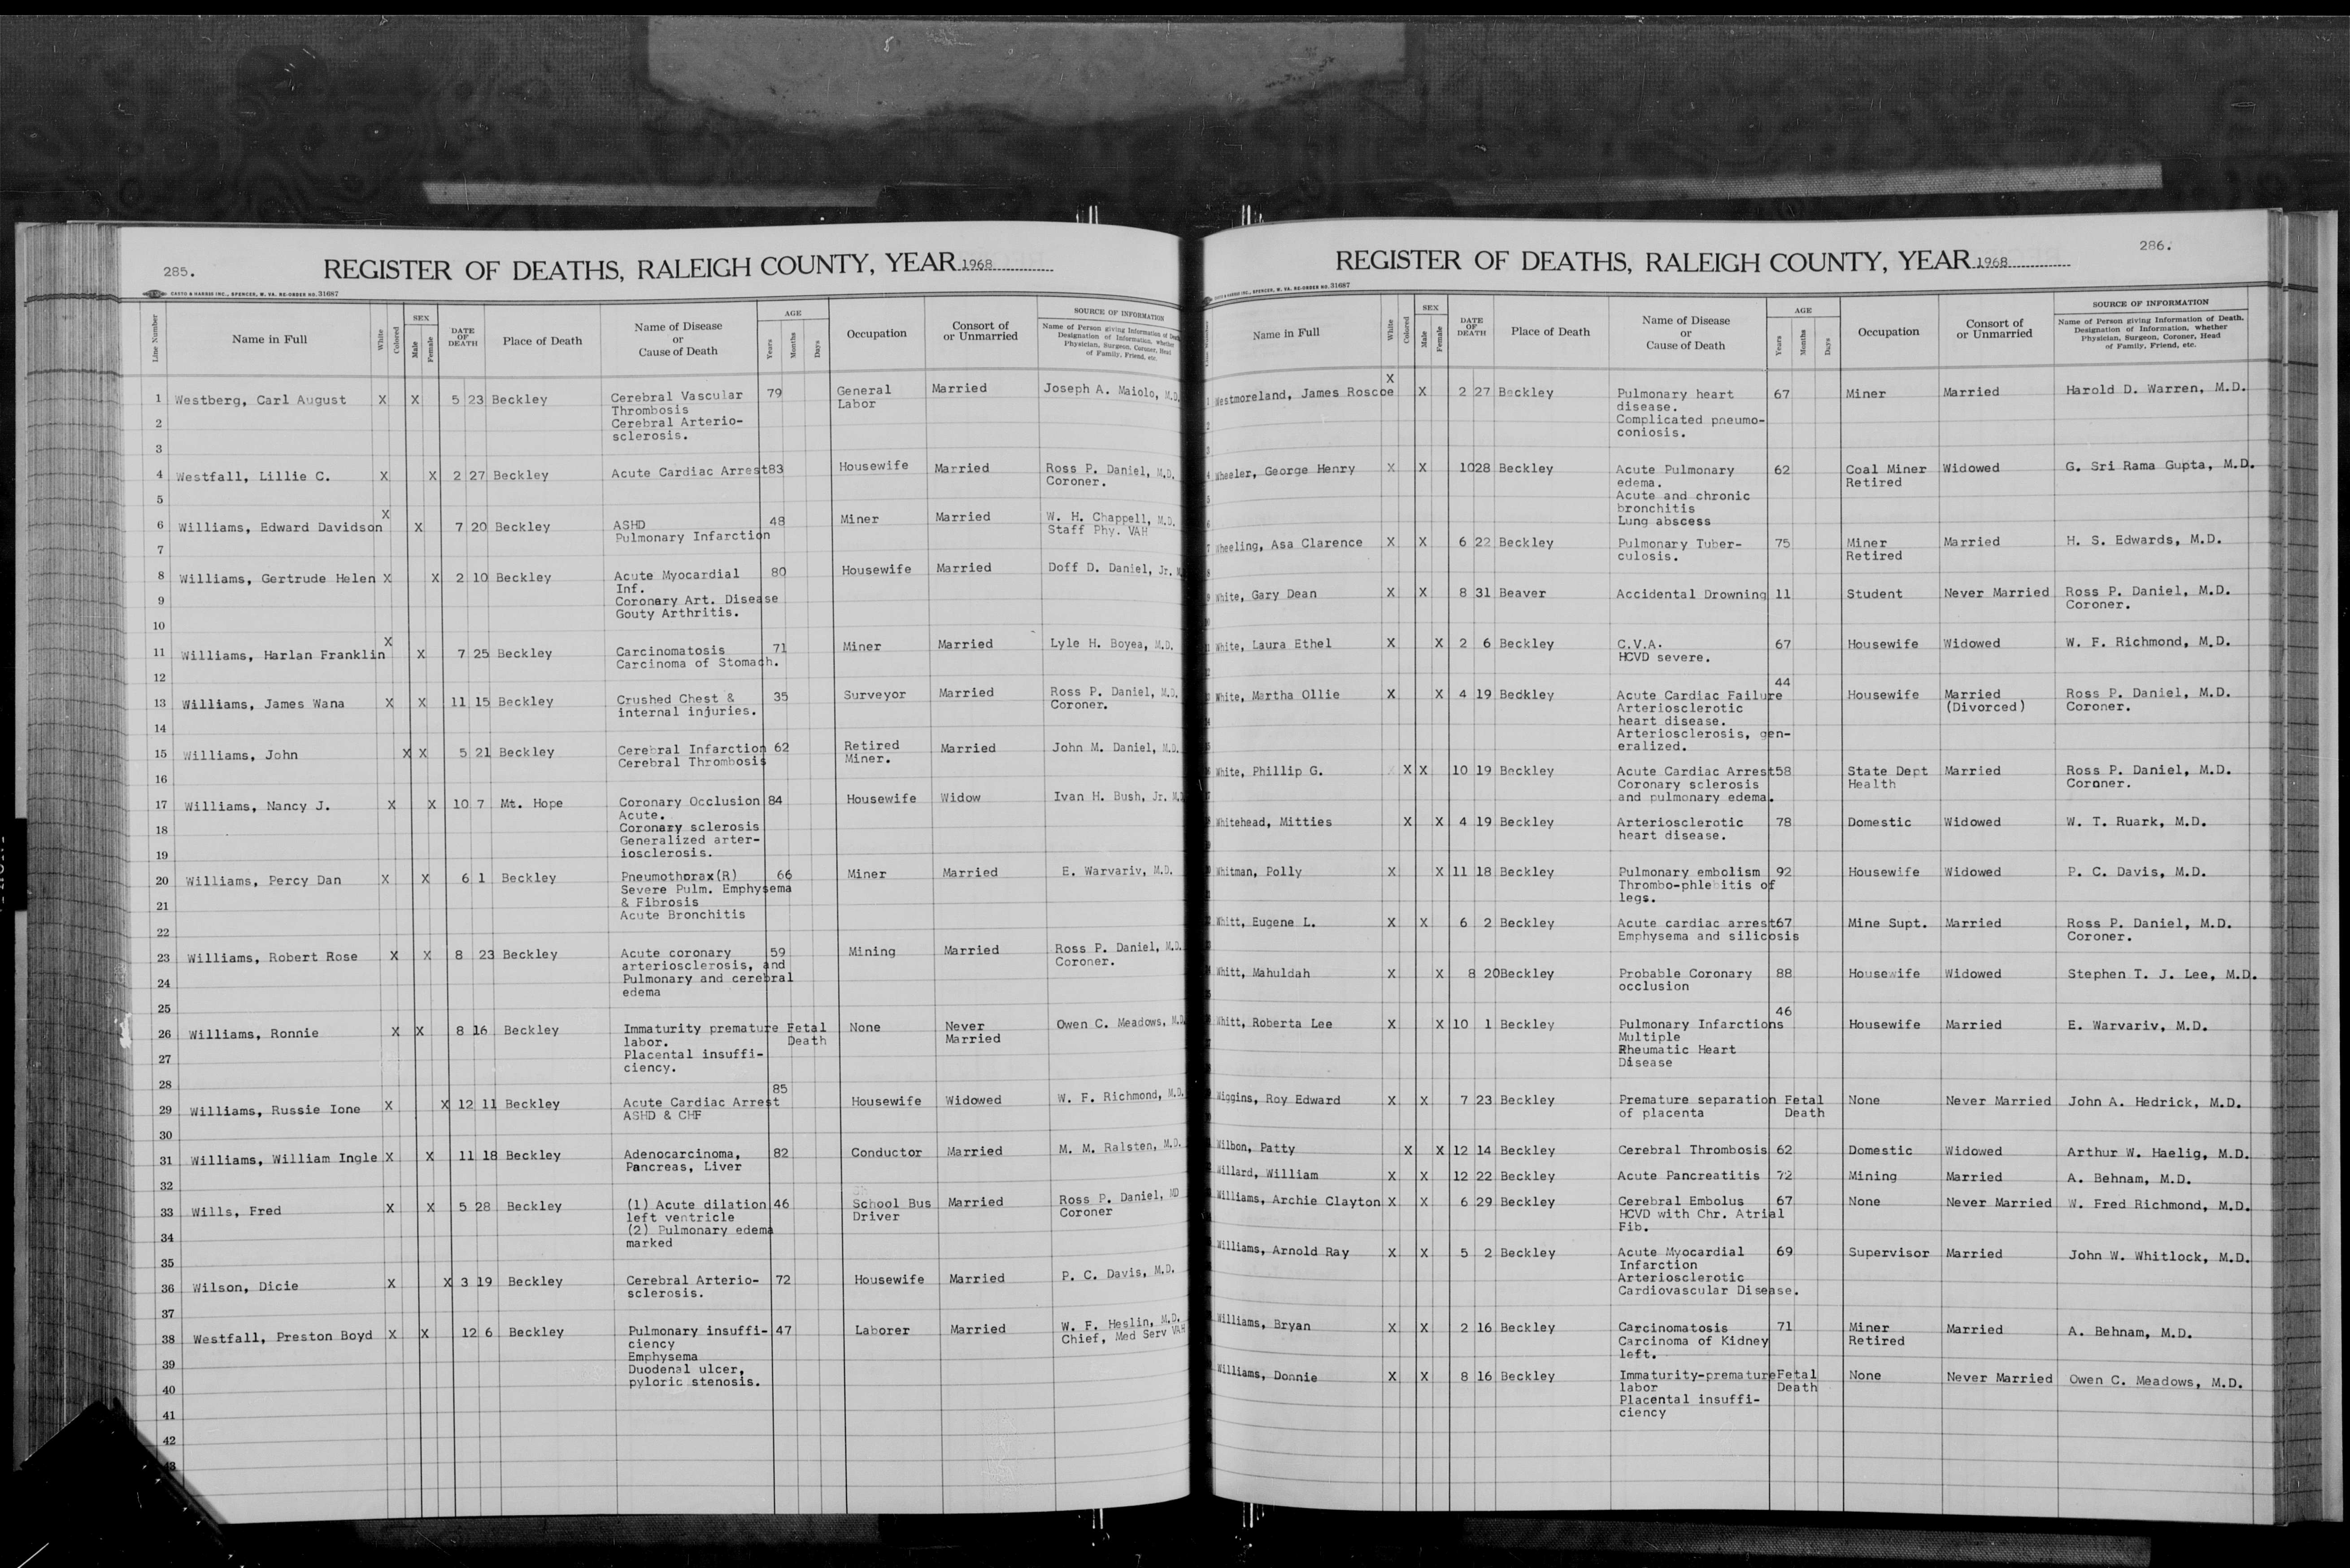 285.
REGISTER OF DEATHS, RALEIGH COUNTY, YEAR 1968
CASTO & HARRIS INC., SPENCER, W. VA. RE-ORDER NO. 31687
Line Number | Name in Full | White | Colored | SEX Male | Female | DATE OF DEATH | Place of Death | Name of Disease or Cause of Death | AGE Years | Months | Days | Occupation | Consort of or Unmarried | SOURCE OF INFORMATION Name of Person giving Information of Death Designation of Information, whether Physician, Surgeon, Coroner, Head of Family, Friend, etc.
1 Westberg, Carl August X X 5 23 Beckley Cerebral Vascular 79 General Married Joseph A. Maiolo, M.D.
Thrombosis Labor
2 Cerebral Arterio-
sclerosis.
3
4 Westfall, Lillie C. X X 2 27 Beckley Acute Cardiac Arrest 83 Housewife Married Ross P. Daniel, M.D.
Coroner.
5
6 Williams, Edward Davidson X X 7 20 Beckley ASHD 48 Miner Married W. H. Chappell, M.D.
Pulmonary Infarction Staff Phy. VAH
7
8 Williams, Gertrude Helen X X 2 10 Beckley Acute Myocardial 80 Housewife Married Doff D. Daniel, Jr.
Inf.
9 Coronary Art. Disease
Gouty Arthritis.
10
11 Williams, Harlan Franklin X X 7 25 Beckley Carcinomatosis 71 Miner Married Lyle H. Boyea, M.D.
Carcinoma of Stomach.
12
13 Williams, James Wana X X 11 15 Beckley Crushed Chest & 35 Surveyor Married Ross P. Daniel, M.D.
internal injuries. Coroner.
14
15 Williams, John X X 5 21 Beckley Cerebral Infarction 62 Retired Married John M. Daniel, M.D.
Cerebral Thrombosis Miner.
16
17 Williams, Nancy J. X X 10 7 Mt. Hope Coronary Occlusion 84 Housewife Widow Ivan H. Bush, Jr. M.D
Acute.
18 Coronary sclerosis
Generalized arter-
19 iosclerosis.
20 Williams, Percy Dan X X 6 1 Beckley Pneumothorax(R) 66 Miner Married E. Warvariv, M.D.
Severe Pulm. Emphysema
21 & Fibrosis
Acute Bronchitis
22
23 Williams, Robert Rose X X 8 23 Beckley Acute coronary 59 Mining Married Ross P. Daniel, M.D.
arteriosclerosis, and Coroner.
24 Pulmonary and cerebral
edema
25
26 Williams, Ronnie X X 8 16 Beckley Immaturity premature Fetal None Never Owen C. Meadows, M.D.
labor. Death Married
27 Placental insuffi-
ciency.
28
29 Williams, Russie Ione X X 12 11 Beckley Acute Cardiac Arrest 85 Housewife Widowed W. F. Richmond, M.D.
ASHD & CHF
30
31 Williams, William Ingle X X 11 18 Beckley Adenocarcinoma, 82 Conductor Married M. M. Ralsten, M.D.
Pancreas, Liver
32
33 Wills, Fred X X 5 28 Beckley (1) Acute dilation 46 School Bus Married Ross P. Daniel, MD
left ventricle Driver Coroner
34 (2) Pulmonary edema
marked
35
36 Wilson, Dicie X X 3 19 Beckley Cerebral Arterio- 72 Housewife Married P. C. Davis, M.D.
sclerosis.
37
38 Westfall, Preston Boyd X X 12 6 Beckley Pulmonary insuffi- 47 Laborer Married W. F. Heslin, M.D.
ciency Chief, Med Serv VAH
39 Emphysema
Duodenal ulcer,
40 pyloric stenosis.
41
42
43
286.
REGISTER OF DEATHS, RALEIGH COUNTY, YEAR 1968
CASTO & HARRIS INC., SPENCER, W. VA. RE-ORDER NO. 31687
Name in Full | White | Colored | SEX Male | Female | DATE OF DEATH | Place of Death | Name of Disease or Cause of Death | AGE Years | Months | Days | Occupation | Consort of or Unmarried | SOURCE OF INFORMATION Name of Person giving Information of Death, Designation of Information, whether Physician, Surgeon, Coroner, Head of Family, Friend, etc.
Westmoreland, James Roscoe X X 2 27 Beckley Pulmonary heart 67 Miner Married Harold D. Warren, M.D.
disease.
Complicated pneumo-
coniosis.
Wheeler, George Henry X X 10 28 Beckley Acute Pulmonary 62 Coal Miner Widowed G. Sri Rama Gupta, M.D.
edema. Retired
Acute and chronic
bronchitis
Lung abscess
Wheeling, Asa Clarence X X 6 22 Beckley Pulmonary Tuber- 75 Miner Married H. S. Edwards, M.D.
culosis. Retired
White, Gary Dean X X 8 31 Beaver Accidental Drowning 11 Student Never Married Ross P. Daniel, M.D.
Coroner.
White, Laura Ethel X X 2 6 Beckley C.V.A. 67 Housewife Widowed W. F. Richmond, M.D.
HCVD severe.
White, Martha Ollie X X 4 19 Beckley Acute Cardiac Failure 44 Housewife Married Ross P. Daniel, M.D.
Arteriosclerotic (Divorced) Coroner.
heart disease.
Arteriosclerosis, gen-
eralized.
White, Phillip G. X X 10 19 Beckley Acute Cardiac Arrest 58 State Dept Married Ross P. Daniel, M.D.
Coronary sclerosis Health Coroner.
and pulmonary edema.
Whitehead, Mitties X X 4 19 Beckley Arteriosclerotic 78 Domestic Widowed W. T. Ruark, M.D.
heart disease.
Whitman, Polly X X 11 18 Beckley Pulmonary embolism 92 Housewife Widowed P. C. Davis, M.D.
Thrombo-phlebitis of
legs.
Whitt, Eugene L. X X 6 2 Beckley Acute cardiac arrest 67 Mine Supt. Married Ross P. Daniel, M.D.
Emphysema and silicosis Coroner.
Whitt, Mahuldah X X 8 20 Beckley Probable Coronary 88 Housewife Widowed Stephen T. J. Lee, M.D.
occlusion
Whitt, Roberta Lee X X 10 1 Beckley Pulmonary Infarctions 46 Housewife Married E. Warvariv, M.D.
Multiple
Rheumatic Heart
Disease
Wiggins, Roy Edward X X 7 23 Beckley Premature separation Fetal None Never Married John A. Hedrick, M.D.
of placenta Death
Wilbon, Patty X X 12 14 Beckley Cerebral Thrombosis 62 Domestic Widowed Arthur W. Haelig, M.D.
Willard, William X X 12 22 Beckley Acute Pancreatitis 72 Mining Married A. Behnam, M.D.
Williams, Archie Clayton X X 6 29 Beckley Cerebral Embolus 67 None Never Married W. Fred Richmond, M.D.
HCVD with Chr. Atrial
Fib.
Williams, Arnold Ray X X 5 2 Beckley Acute Myocardial 69 Supervisor Married John W. Whitlock, M.D.
Infarction
Arteriosclerotic
Cardiovascular Disease.
Williams, Bryan X X 2 16 Beckley Carcinomatosis 71 Miner Married A. Behnam, M.D.
Carcinoma of Kidney Retired
left.
Williams, Donnie X X 8 16 Beckley Immaturity-premature Fetal None Never Married Owen C. Meadows, M.D.
labor Death
Placental insuffi-
ciency